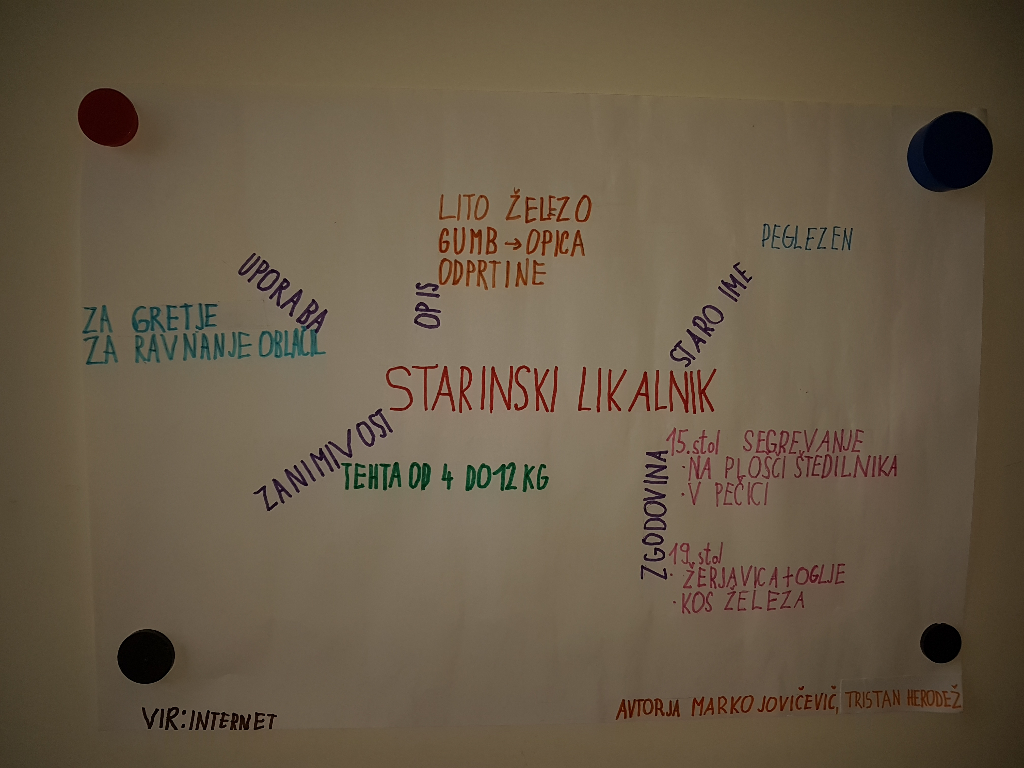 LITO ŽELEZO
GUMB → OPICA
ODPRTINE
OPIS
PEGLEZEN
STARO IME
UPORABA
ZA GRETJE
ZA RAVNANJE OBLAČIL
STARINSKI LIKALNIK
ZANIMIVOST
TEHTA OD 4 DO 12 KG
ZGODOVINA
15. stol SEGREVANJE
· NA PLOŠČI ŠTEDILNIKA
· V PEČICI
19. stol
· ŽERJAVICA + OGLJE
· KOS ŽELEZA
VIR: INTERNET
AVTORJA MARKO JOVIČEVIČ, TRISTAN HERODEŽ